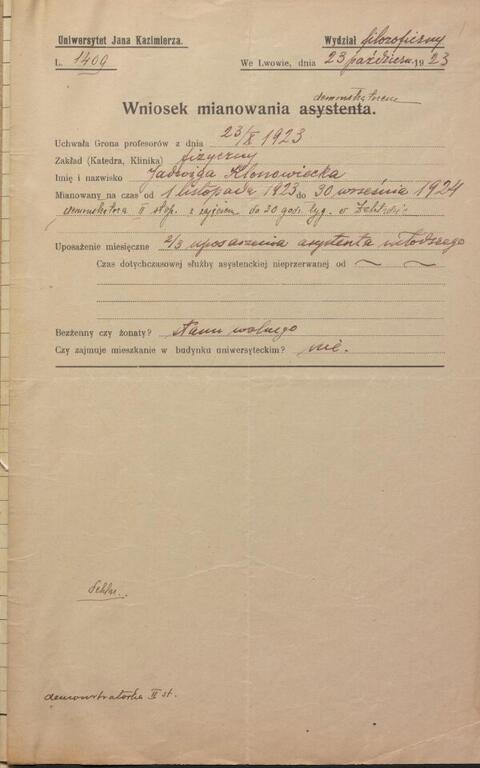 Uniwersytet Jana Kazimierza. Wydział filozoficzny
L. 1409 We Lwowie, dnia 23 październ. 1923
demonstratorem
Wniosek mianowania asystenta.
Uchwała Grona profesorów z dnia 23/X 1923
Zakład (Katedra, Klinika) fizyczny
Imię i nazwisko Jadwiga Klonowiecka
Mianowany na czas od 1 listopada 1923 do 30 września 1924
demonstratora II stop. z zajęciem do 20 godz. tyg. w
Uposażenie miesięczne 2/3 uposażenia asystenta młodszego
Czas dotychczasowej służby asystenckiej nieprzerwanej od
Bezżenny czy żonaty? stanu wolnego
Czy zajmuje mieszkanie w budynku uniwersyteckim? nie.
demonstratorka II st.